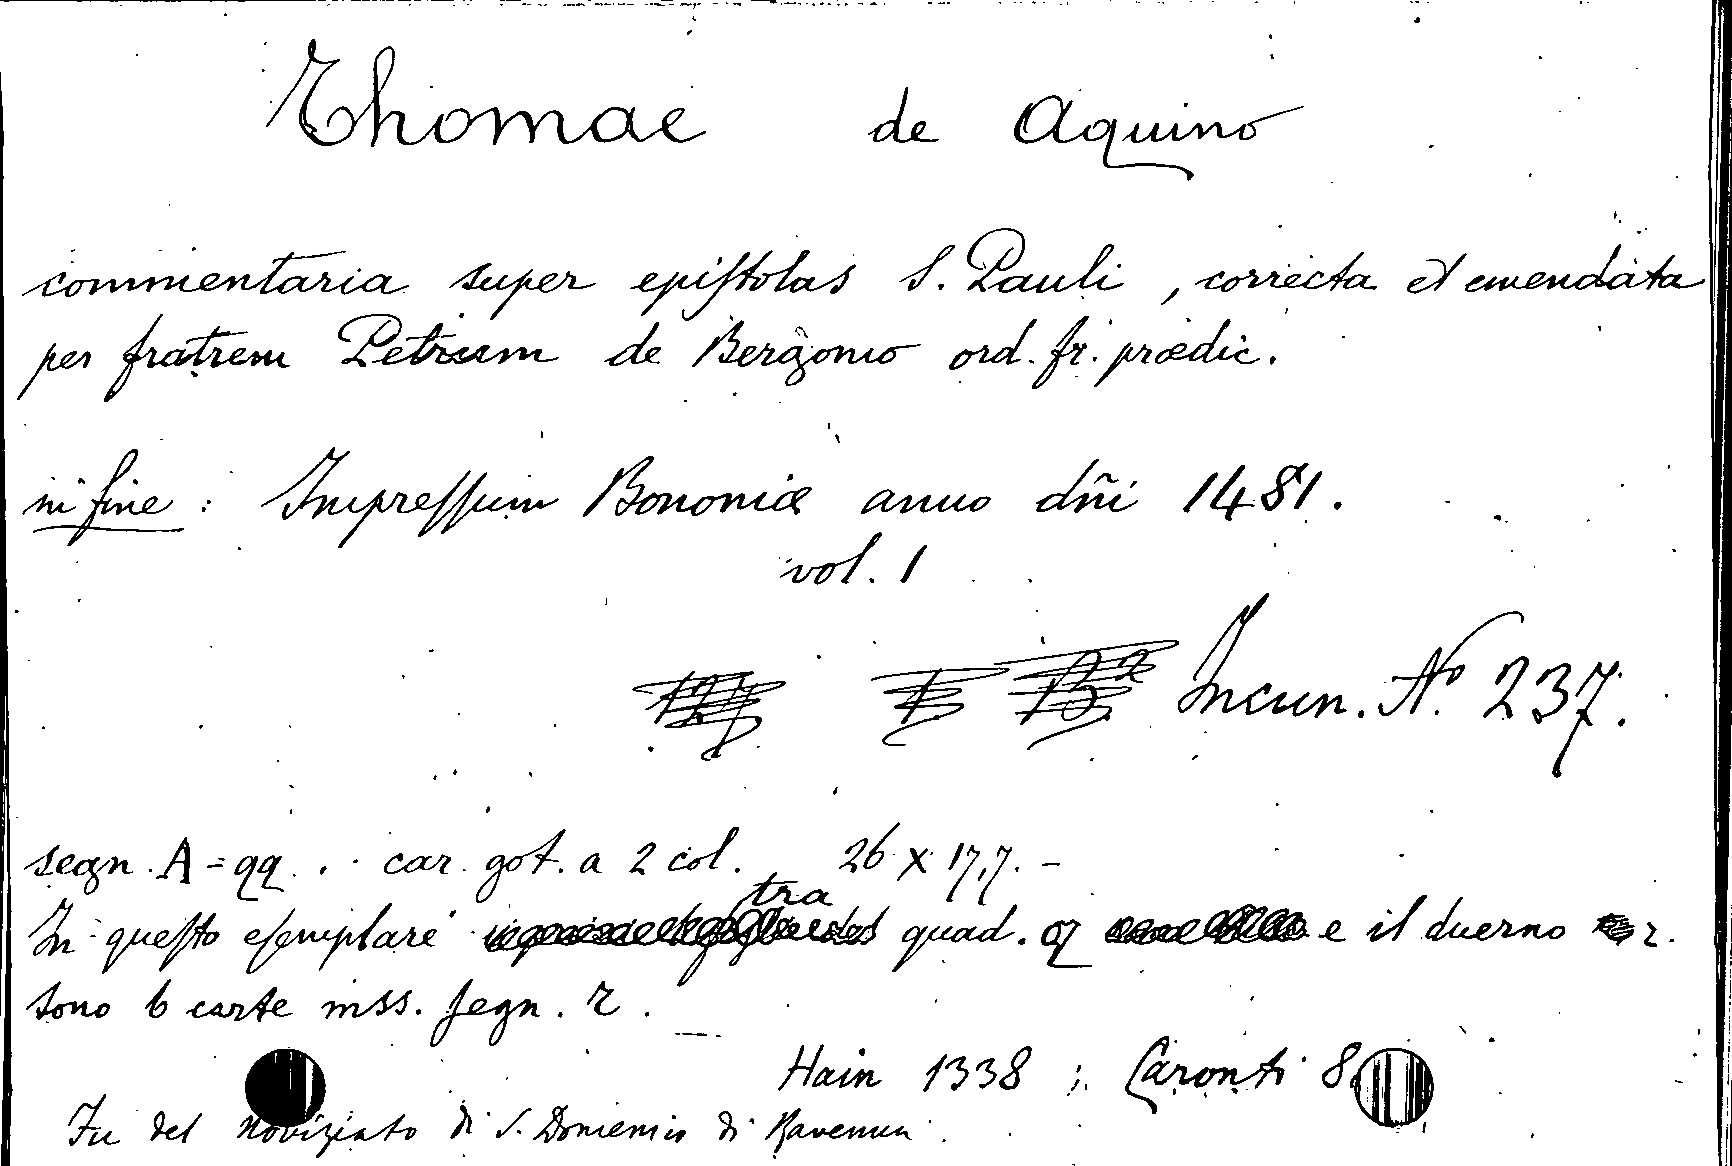 Thomae de Aquino
commentaria super epistolas S. Pauli, correcta et emendata
per fratrem Petrum de Bergomo ord. fr. prædic.
in fine: Impressum Bononiæ anno dñi 1481.
vol. 1
Incun. No 237.
segn. A-qq. car. got. a 2 col. 26 x 17,7. -
In questo esemplare tra quad. q e il duerno r.
sono 6 carte mss. segn. r.
Hain 1338; Caronti 8
Fu del Noviziato di S. Domenico di Ravenna